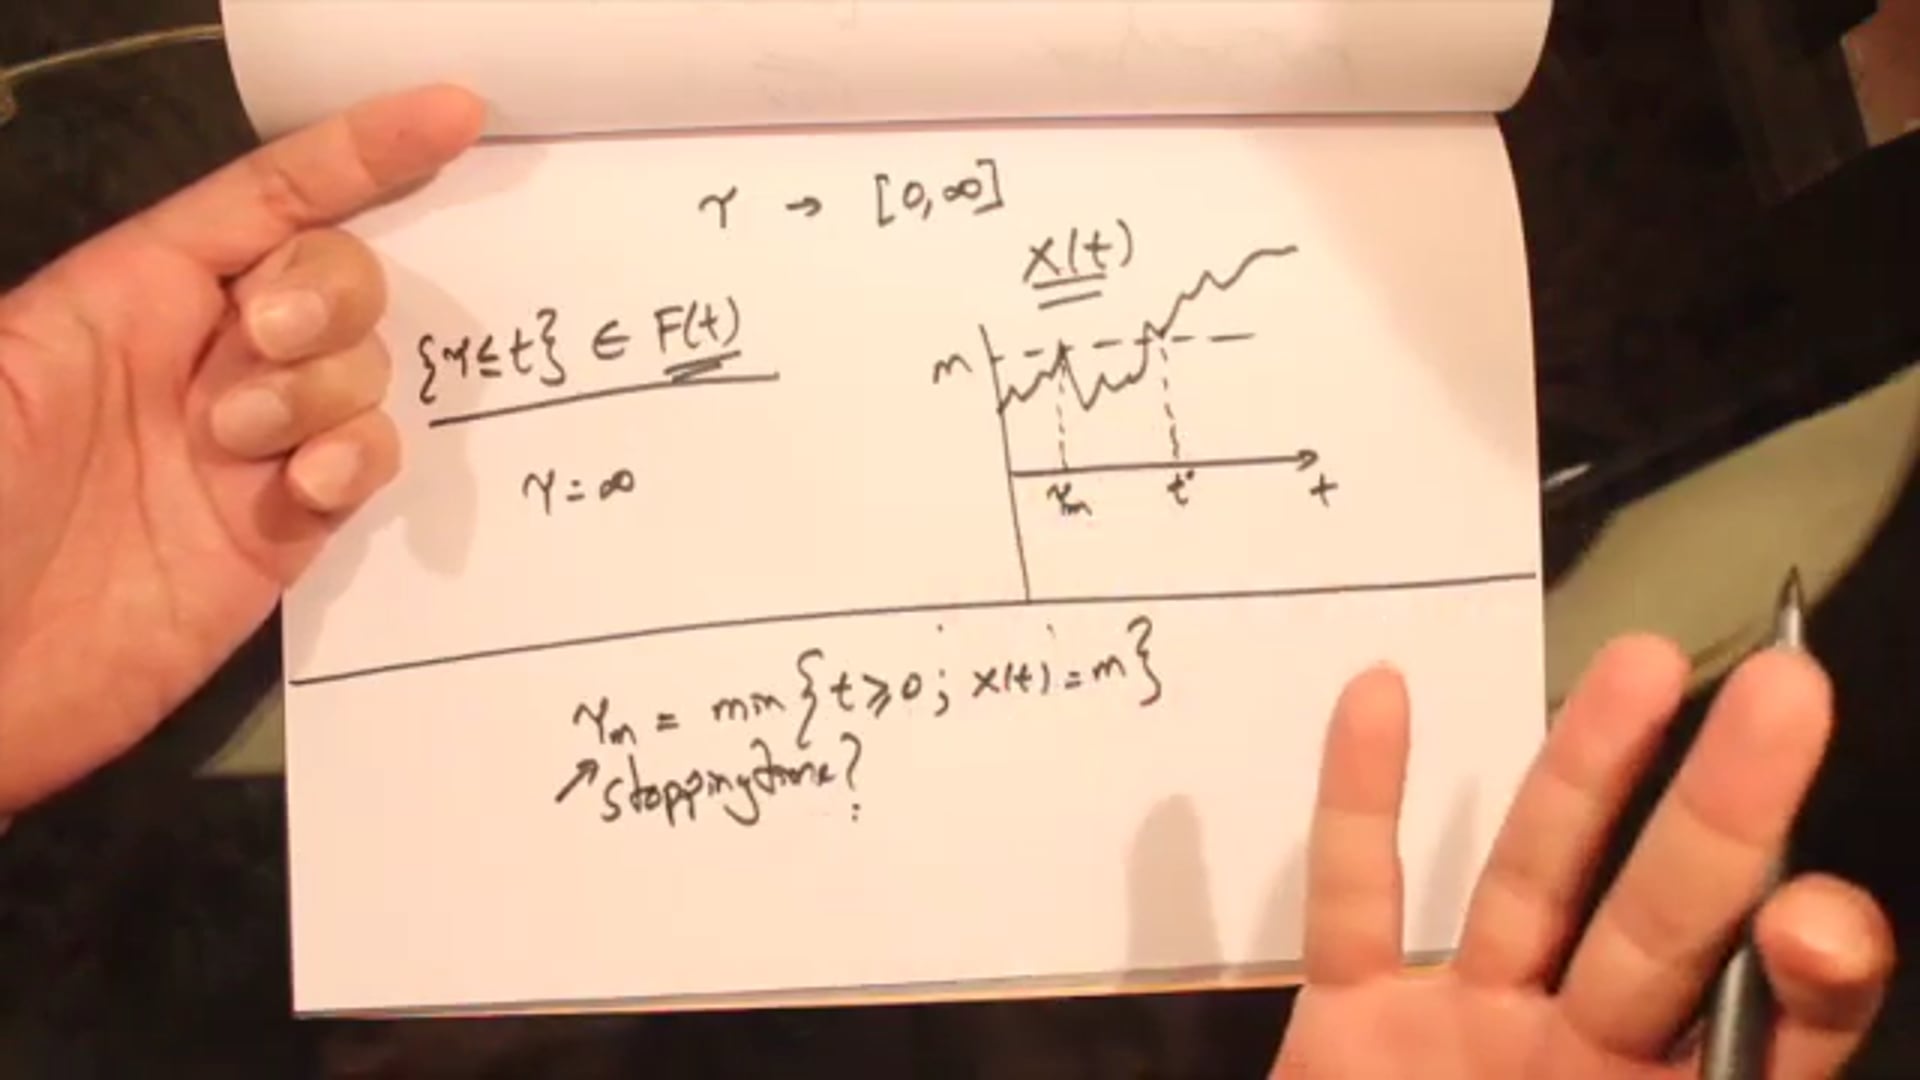 τ → [0,∞]
X(t)
{τ≤t} ∈ F(t)
m
τ=∞
τm t* t
τm = min{t≥0; X(t)=m}
↗ stopping time?